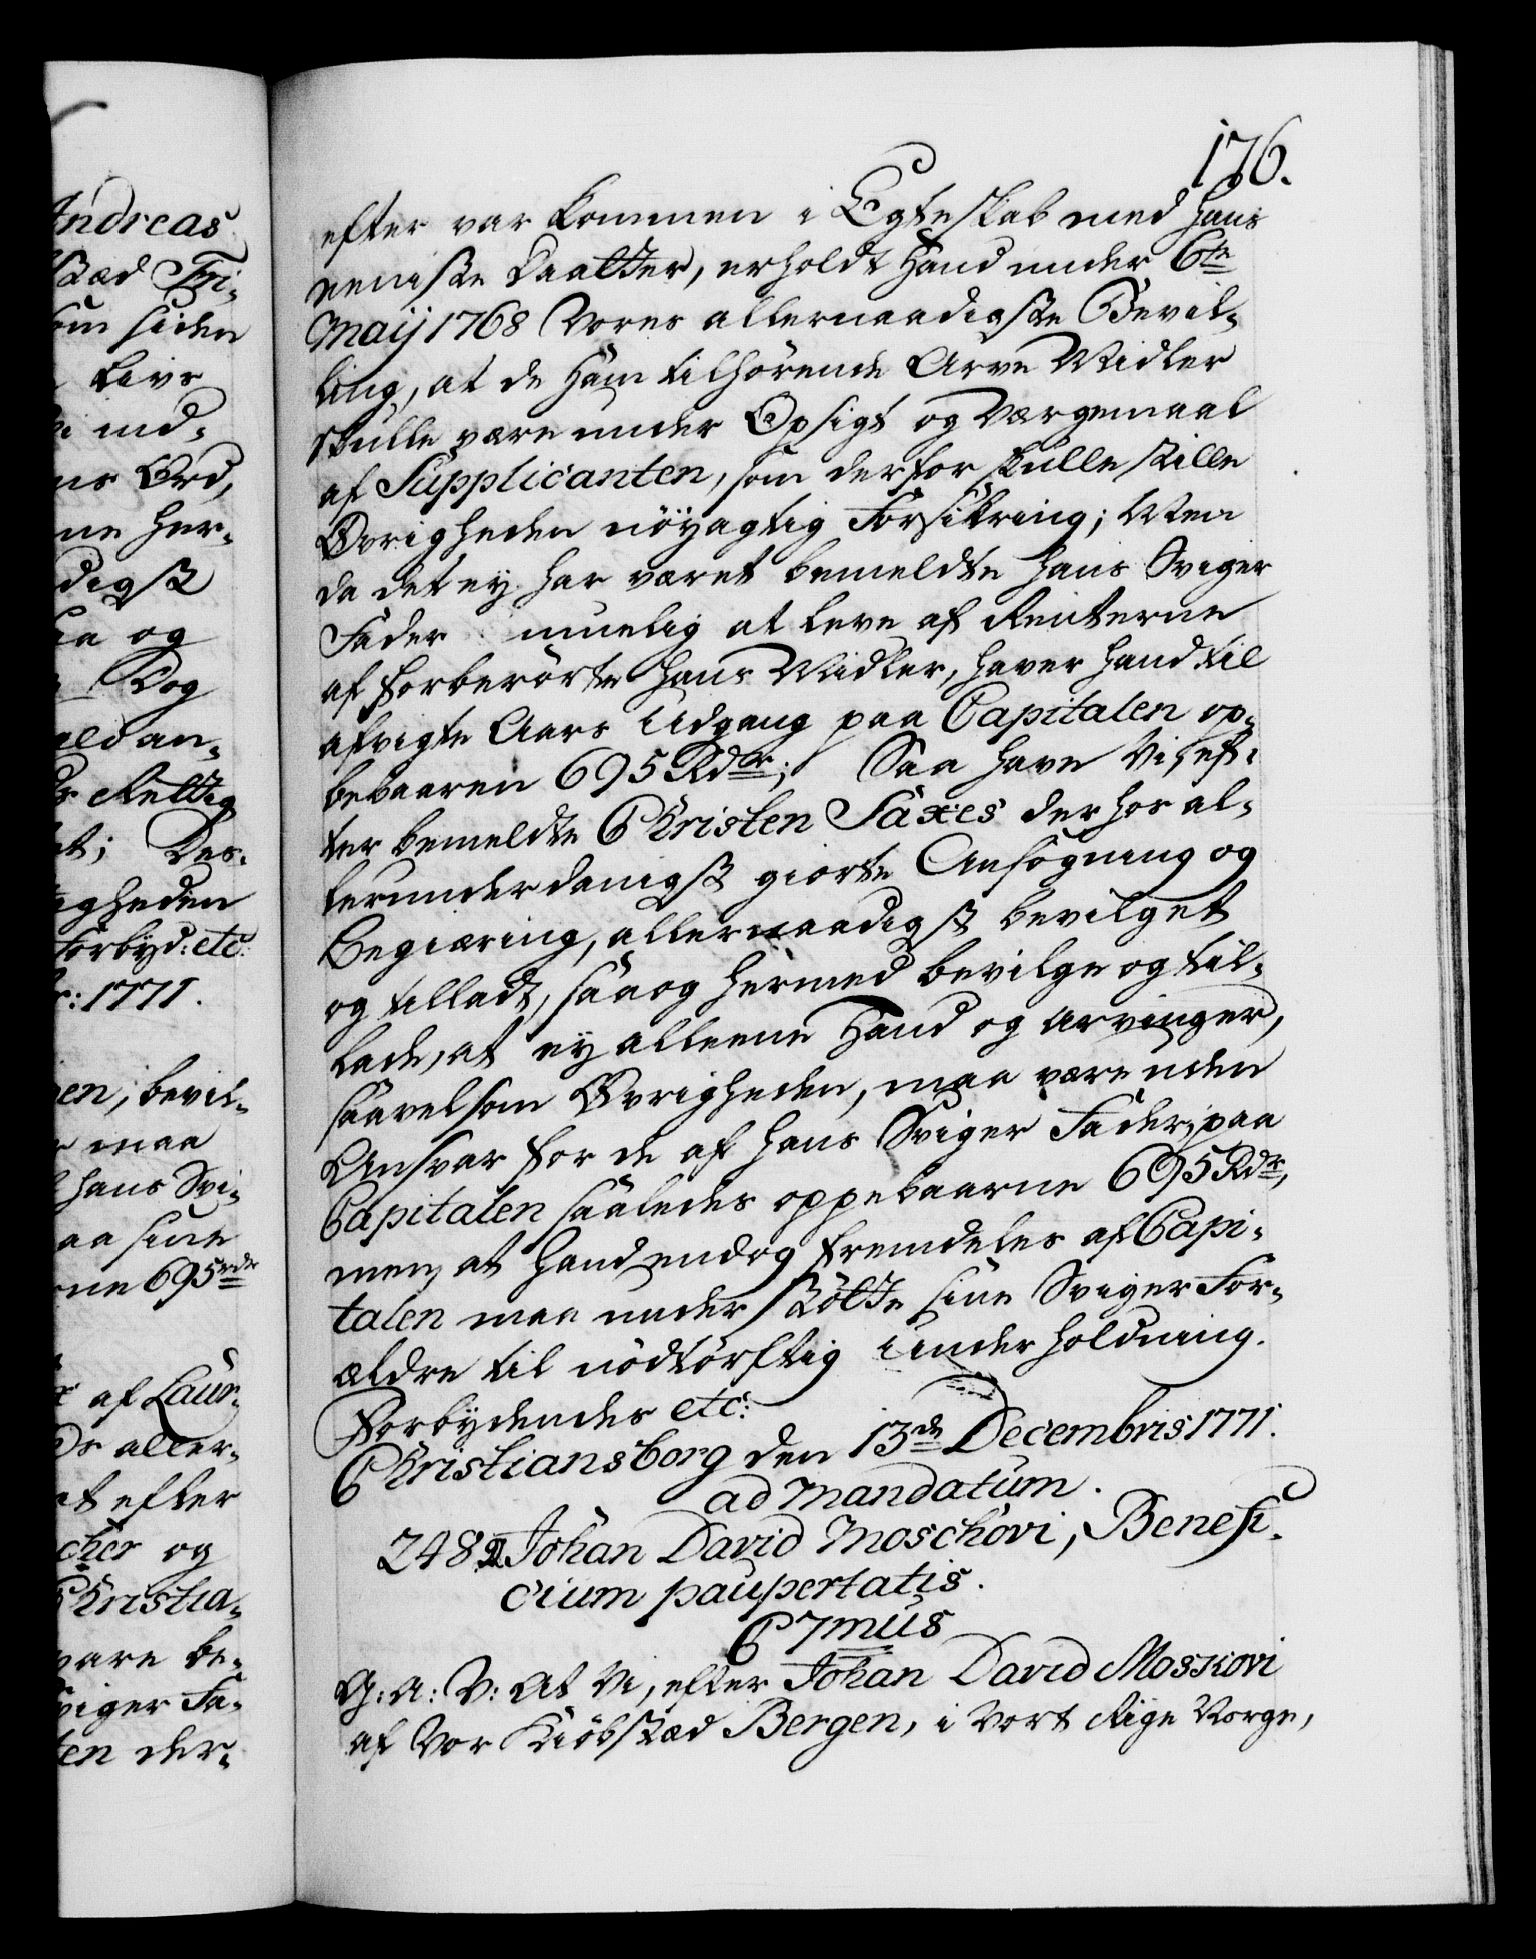 176.
efter var kommen i Egteskab med hans
eeniste Daatter, erholdt Hand under 6te
Maij 1768 Vores allernaadigste Bevil-
ling, at de ham tilhørende Arve Midler
skulle være under Opsigt og Værgemaal
af Supplicanten, som derfor skulle stille
Øvrigheden nöyagtig Forsikring; Men
da det ey har været bemeldte hans Sviger
Fader muelig at leve af Renterne
af forberørte hans Midler, haver hand til
afvigte Aars Udgang paa Capitalen op-
bebaaren 695 Rdr; Saa have Vi, ef-
ter bemeldte Christen Saxes derhos al-
lerunderdanigst giorte Ansøgning og
Begiæring, allernaadigst bevilget
og tilladt, saa og hermed bevilge og til-
lade, at ey alleene Hand og arvinger,
saavelsom Øvrigheden, maa være uden
Ansvar for de af hans Sviger Fader, paa
Capitalen saaledes oppebaarne 695 Rdr,
men, at hand endog fremdeles af Capi-
talen maa understøtte sine Sviger For-
ældre til nødtørftig Underholdning.
Forbydendes etc:
Christiansborg den 13de Decembris 1771.
ad Mandatum.
248 Johan David Moschovi, Benefi-
cium paupertatis.
C 7mus
G: A: V: At Vi, efter Johan David Moskovi
af Vor Kiøbstæd Bergen, i Vort Rige Norge,
Andreas
stæd Fri-
som siden
Livs
ind-
ns Ord,
ne her-
digst
og
Dog
ald an-
Rettig
et; Des-
igheden
Forbyd: etc:
r: 1771.
en, bevil-
maa
hans Svi-
aa sine
ne 695 rdr
af Laur-
aller-
et efter
cher og
Christia-
vare be-
viger Fa-
ten der-